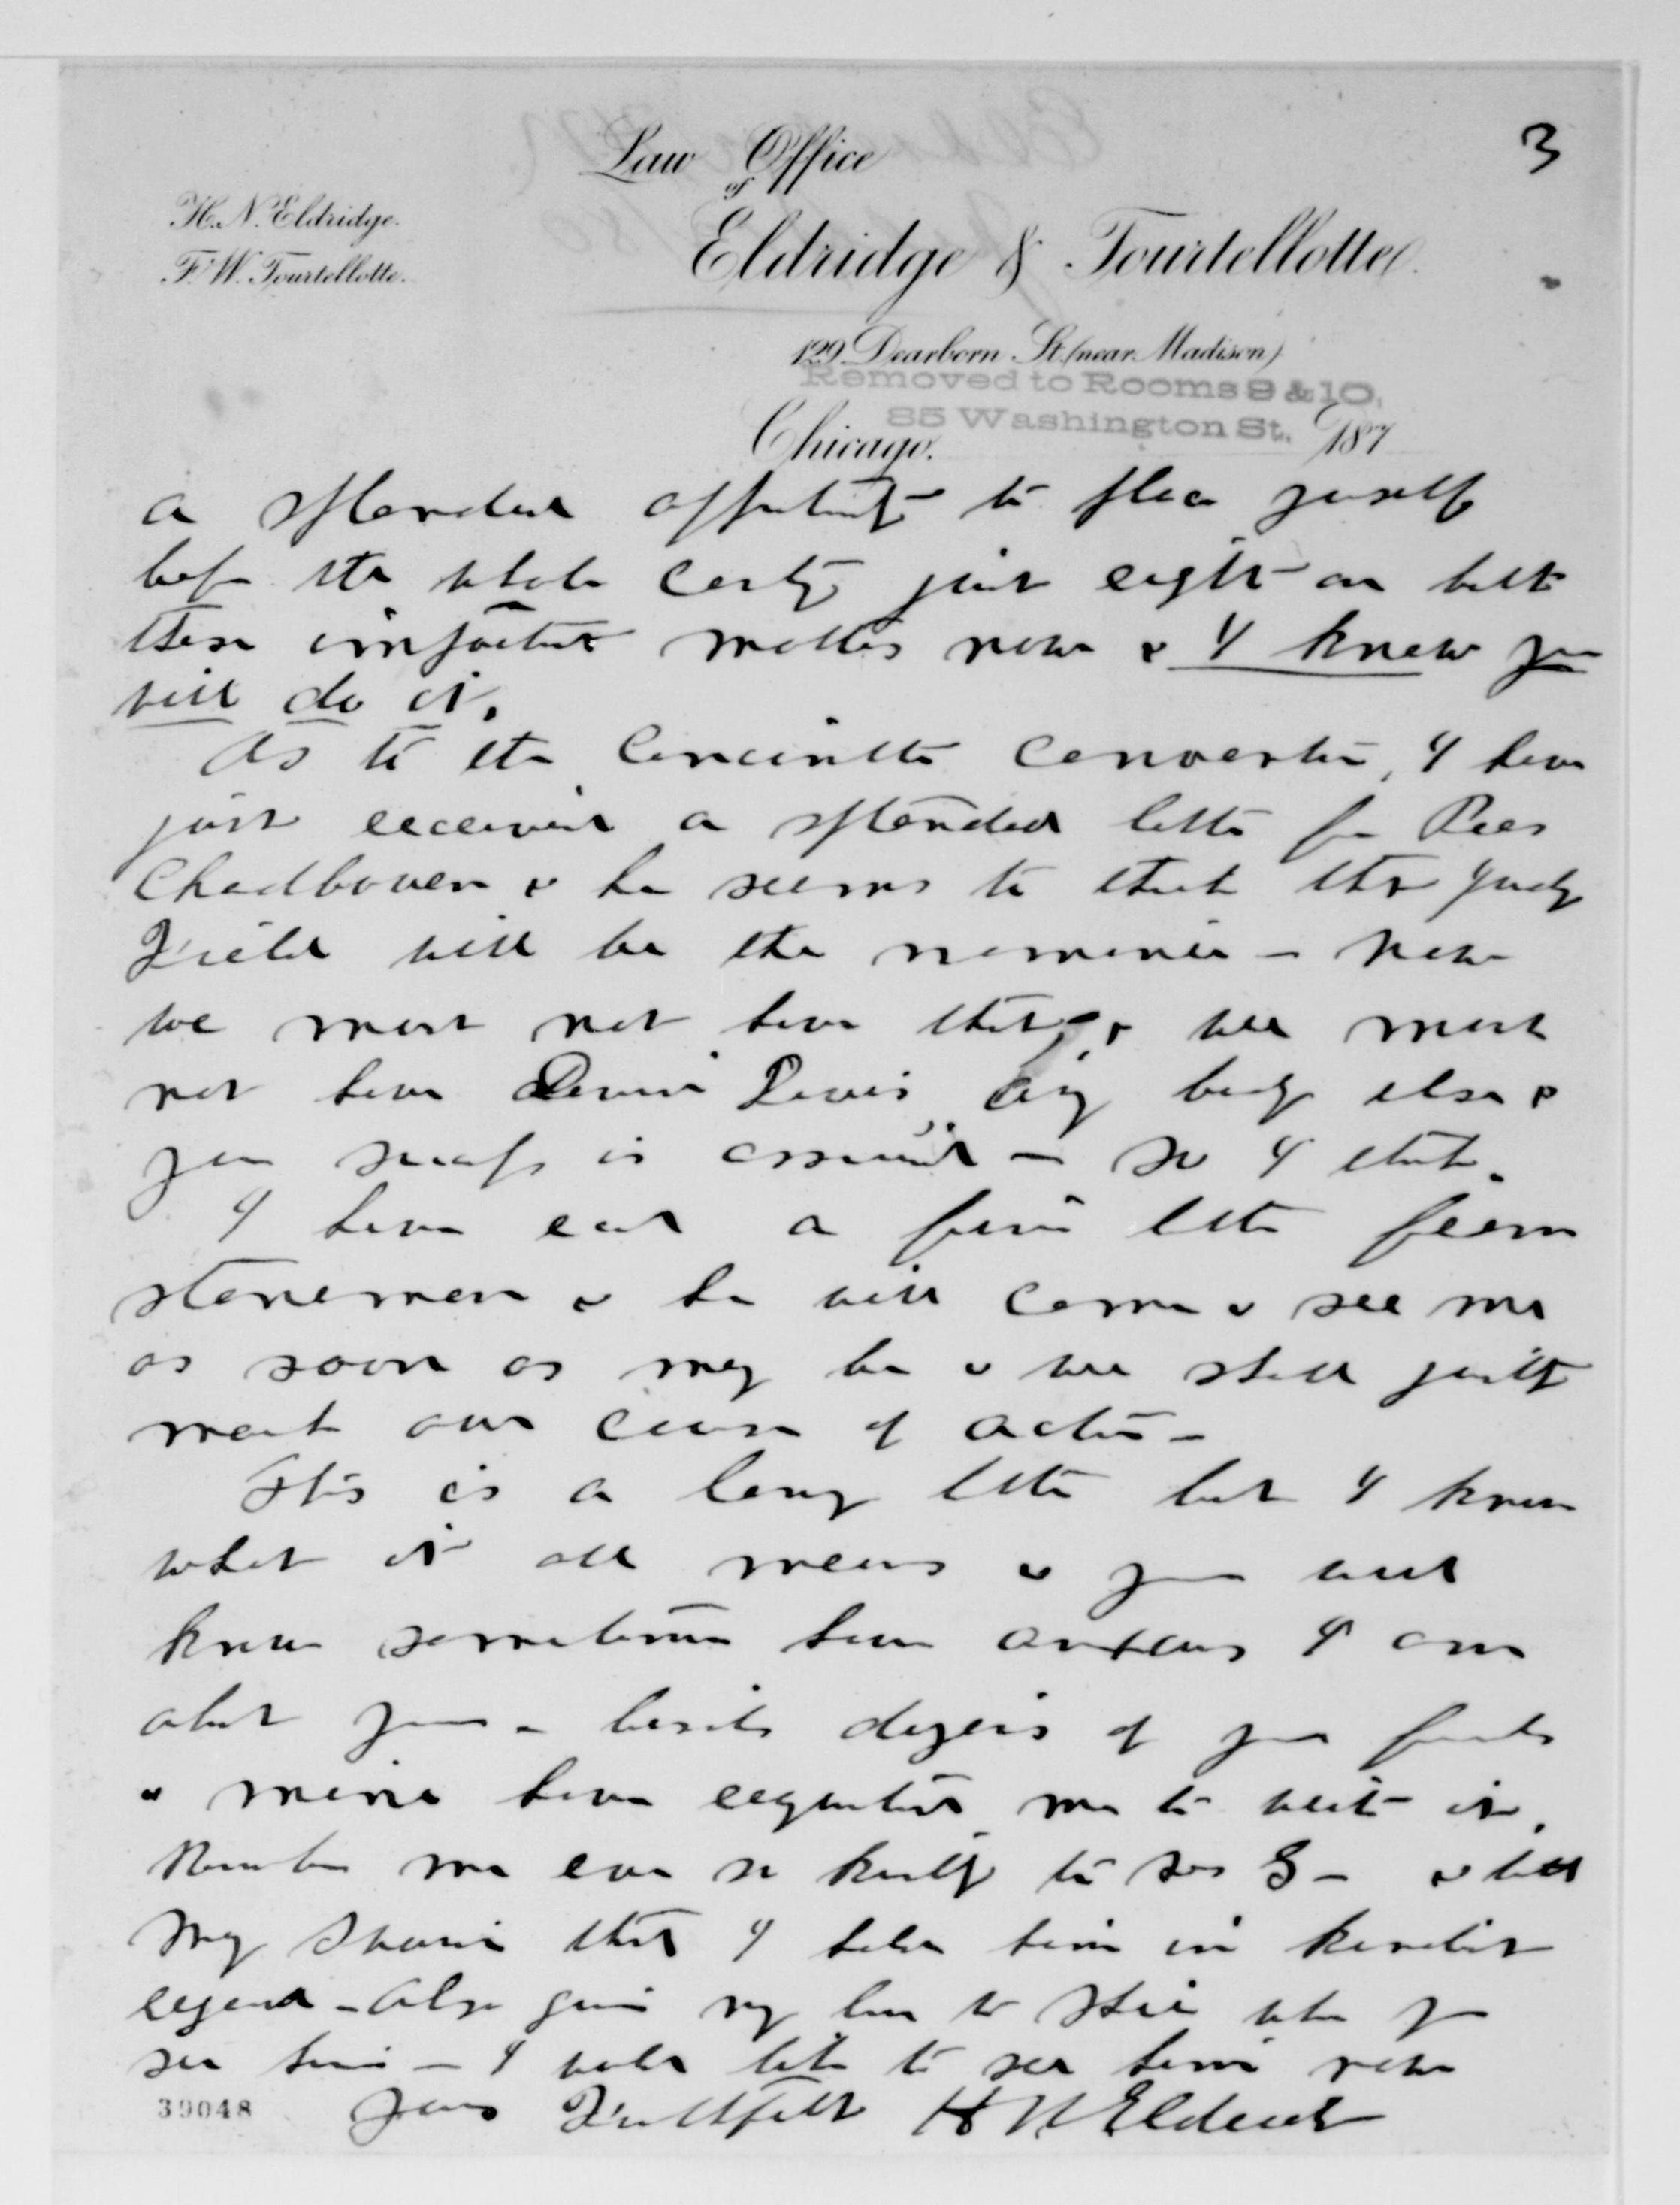 3
Law Office
of
H. N. Eldridge.
F. W. Tourtellotte.
Eldridge & Tourtellotte.
129 Dearborn St. (near Madison)
Removed to Rooms 9 & 10,
85 Washington St.
Chicago. 187
a splendid opportunity to place yourself
before the whole country just right on both
these important matters now & I know you
will do it.
As to the Cincinnati Convention, I have
just received a splendid letter from
Chadbourn & he seems to think that Judge
Field will be the nominee - Now
we must not have that, & we must
not have David Davis, any body else &
your success is assured - so I think.
I have recd a fine letter from
Stoneman & he will come & see me
as soon as may be & we shall
mark our course of action -
This is a long letter but I know
what it all means & you will
know sometime how anxious I am
about you - besides dozens of your friends
& mine have requested me to write it.
Remember me ever so kindly to Mrs G - & tell
my that I hold him in kindest
regard - Also give my love to when you
see him - I would like to see him now
39048
Yours Faithfully H N Eldridge